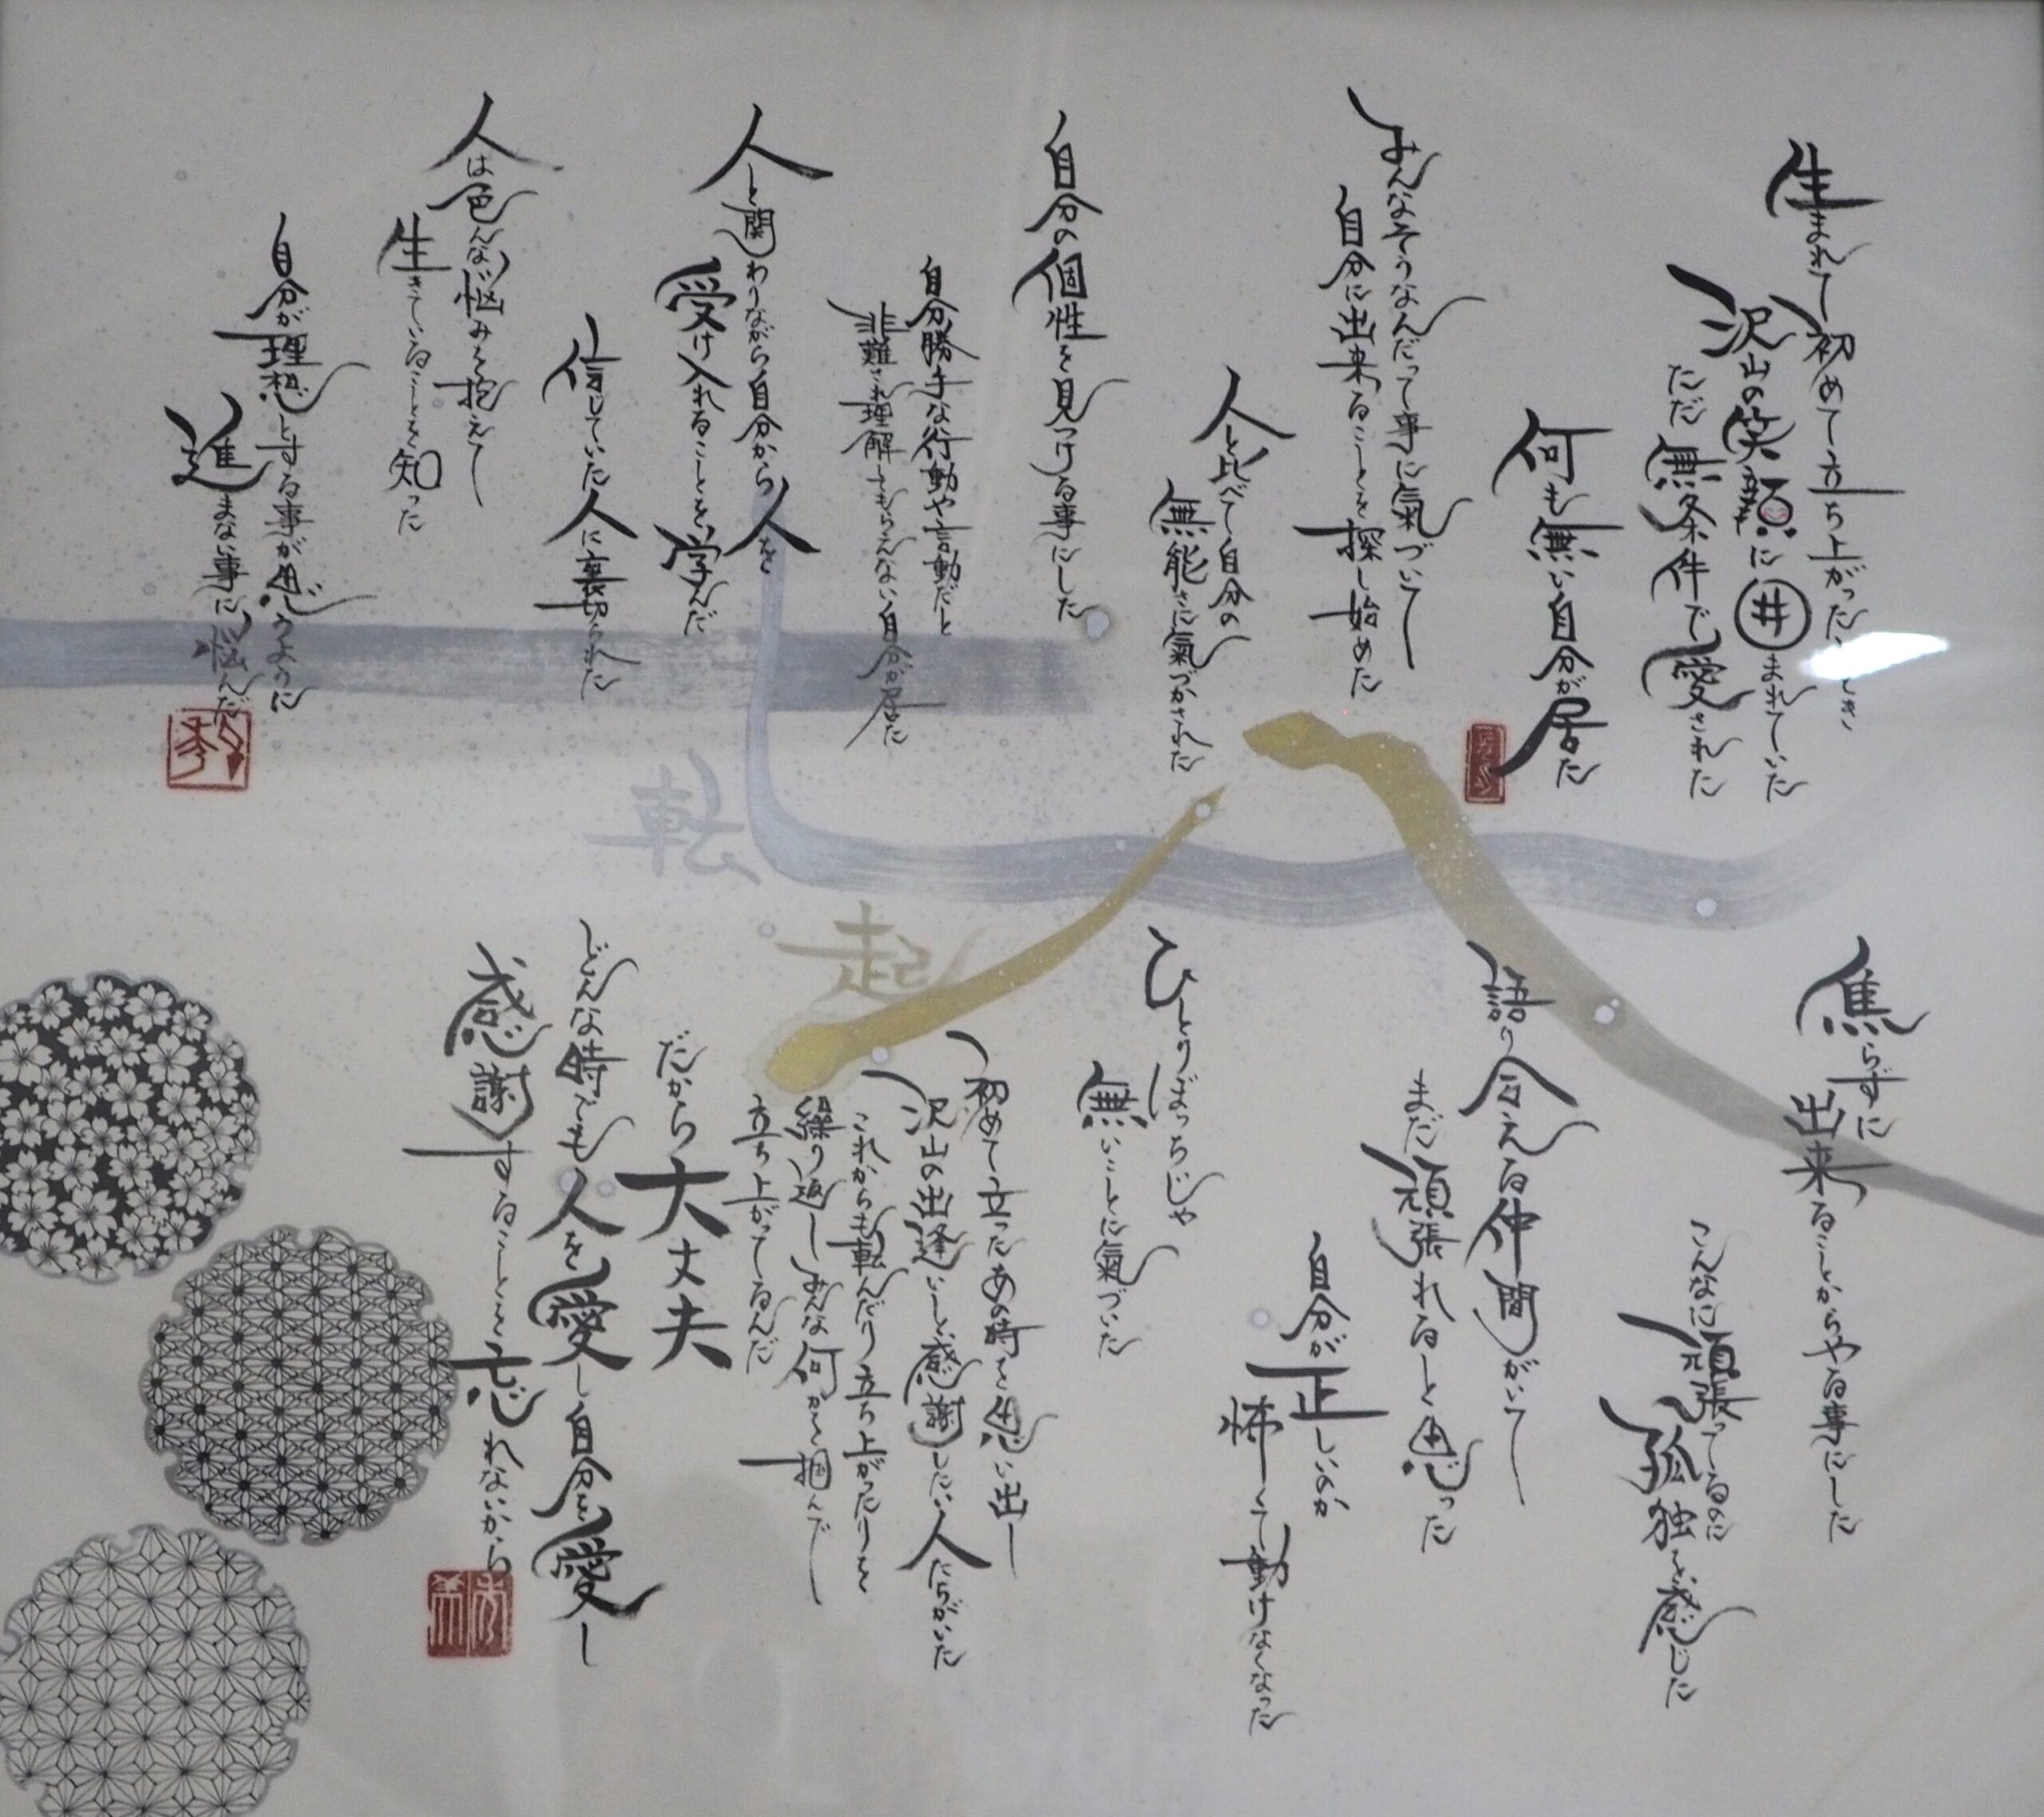 生まれて初めて立ち上がったとき
沢山の笑顔に囲まれていた
ただ無条件で愛された
何も無い自分が居た
みんなそうなんだって事に氣づいて
自分に出来ることを探し始めた
人と比べて自分の
無能さに氣づかされた
自分の個性を見つける事にした
自分勝手な行動や言動だと
非難され理解してもらえない自分が居た
人と関わりながら自分から人を
受け入れることを学んだ
信じていた人に裏切られた
人は色んな悩みを抱えて
生きていることを知った
自分が理想とする事が思うように
進まない事に悩んだ
転
起
焦らずに出来ることからやる事にした
こんなに頑張ってるのに
孤独を感じた
語り合える仲間がいて
まだ頑張れると思った
自分が正しいのか
怖くて動けなくなった
ひとりぼっちじゃ
無いことに氣づいた
初めて立ったあの時を思い出し
沢山の出逢いと感謝したい人たちがいた
これからも転んだり立ち上がったりを
繰り返しみんな何かを掴んで
立ち上がってるんだ
だから大丈夫
どんな時でも人を愛し自分を愛し
感謝することを忘れないから